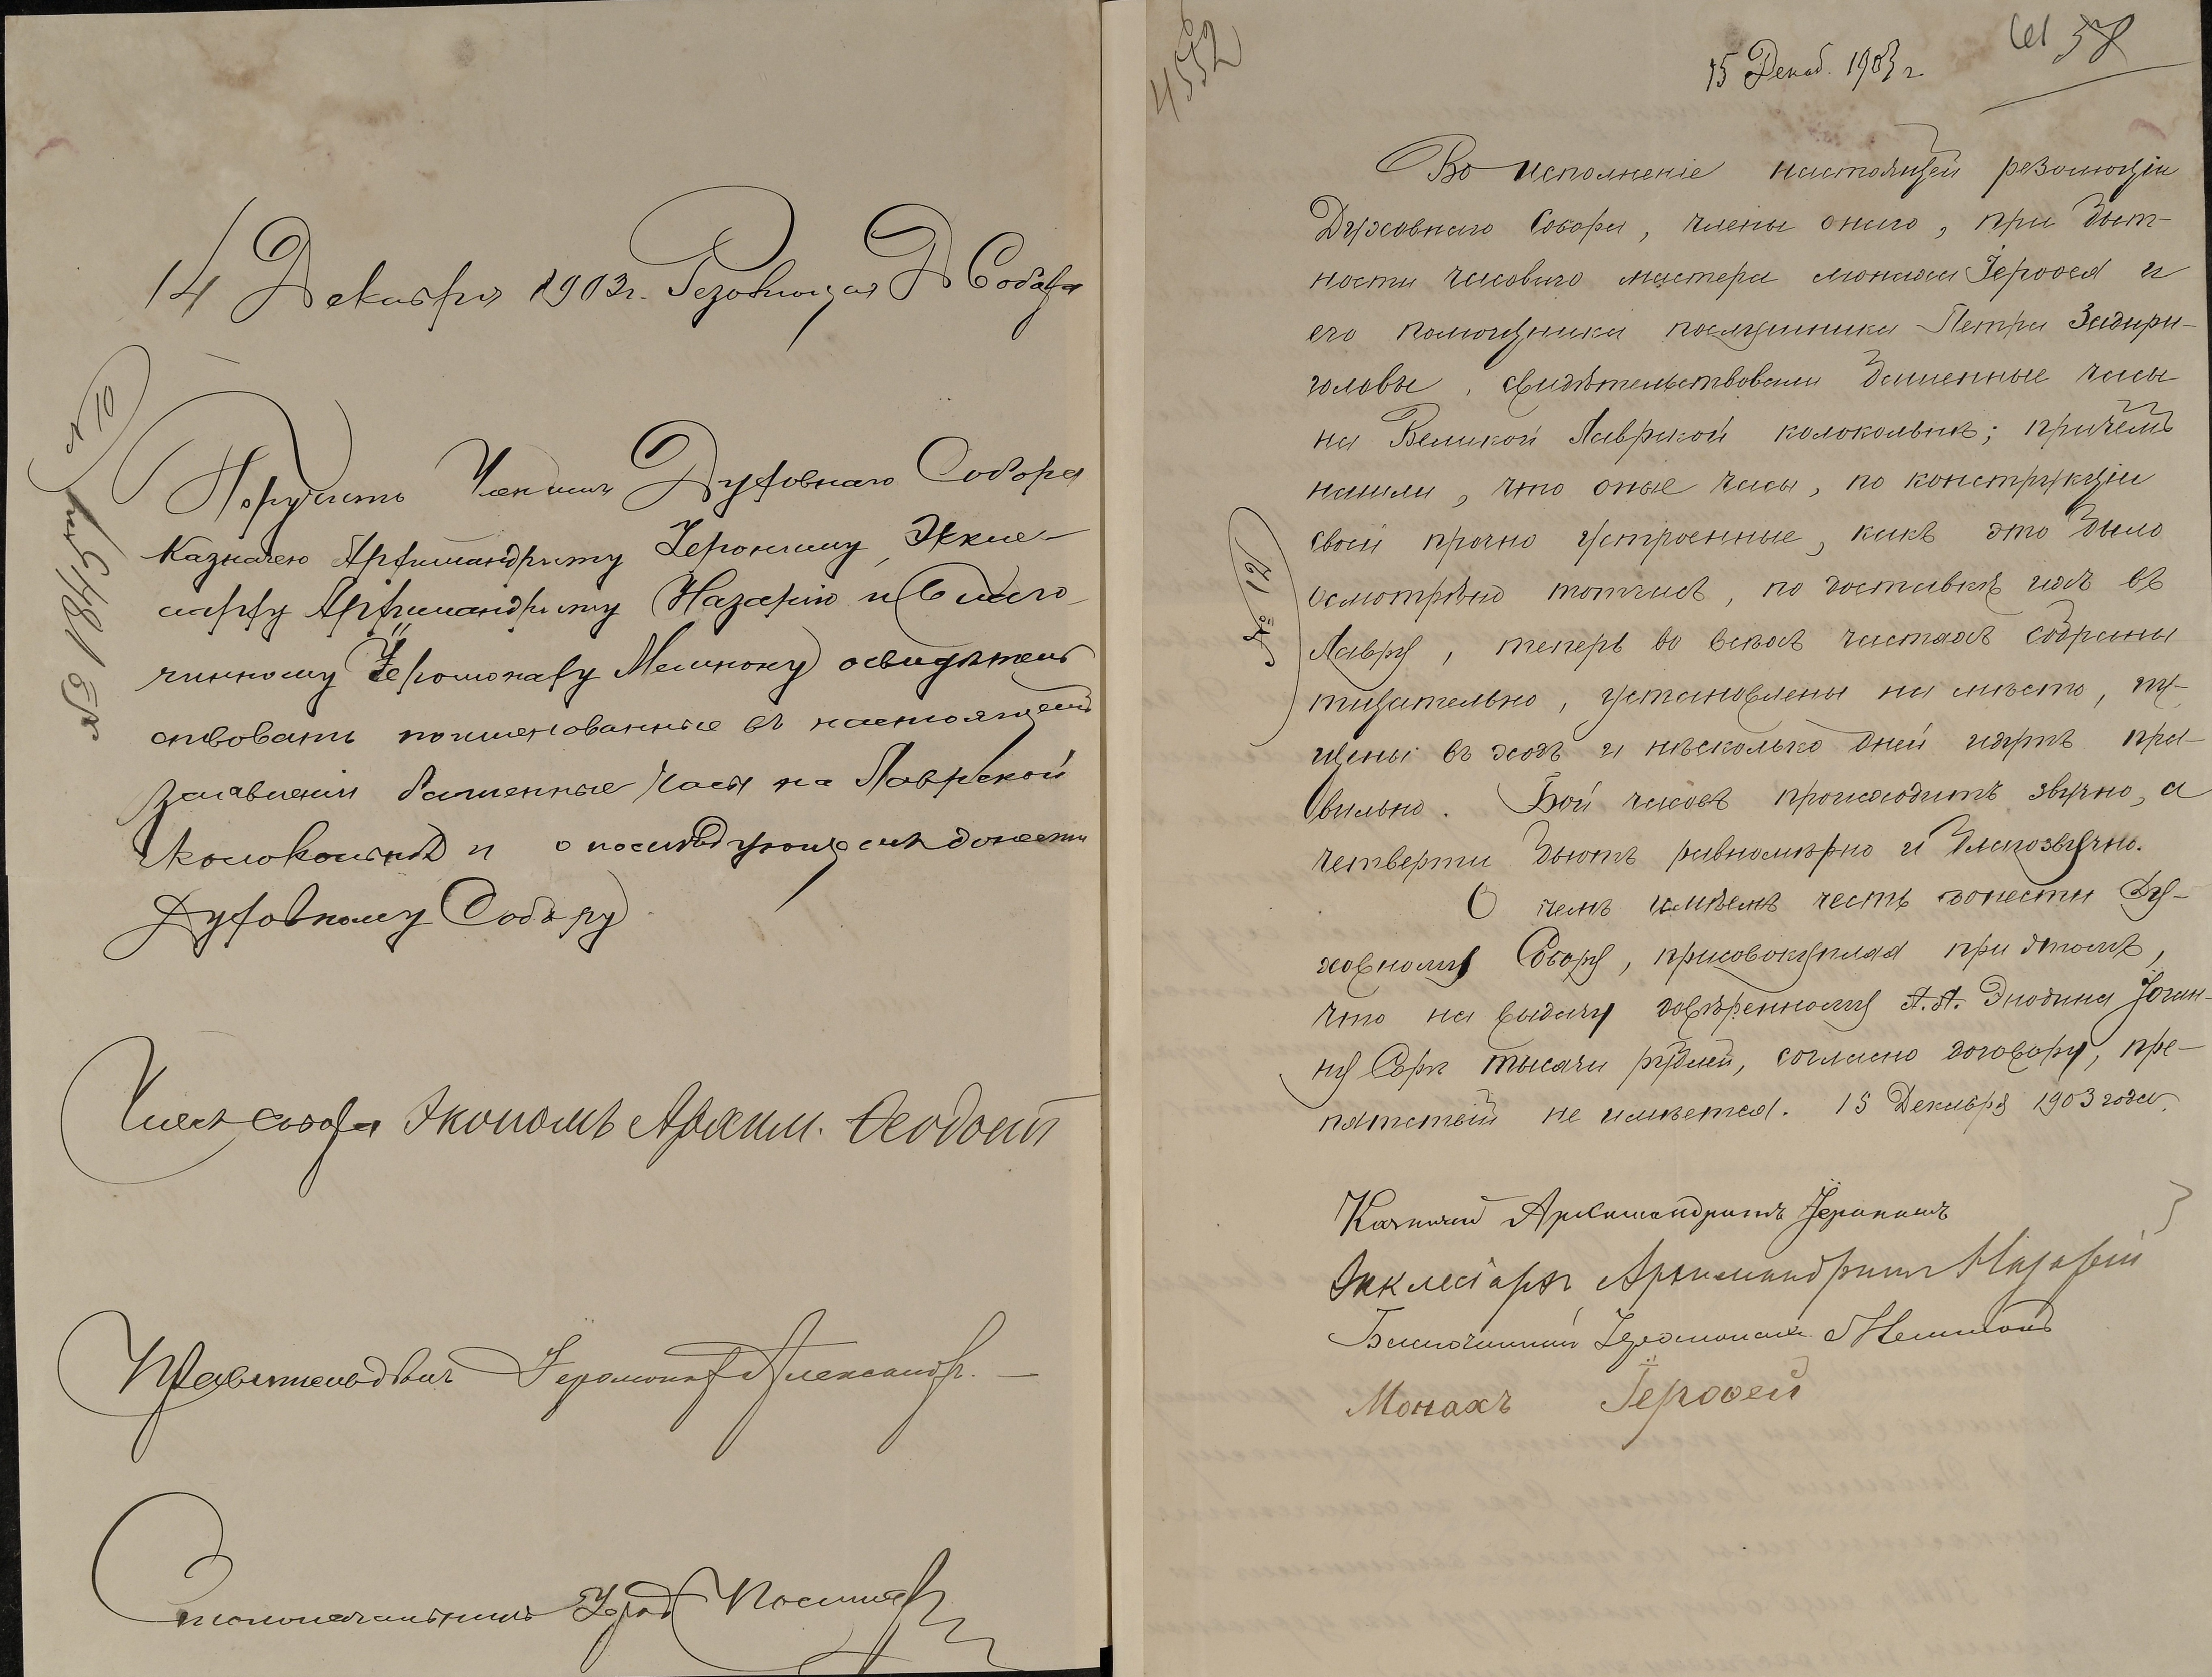 14 Декабря 1903 г. Резолюция Д Собора
Поручить Членамъ Духовнаго Собора
Казначею Архимандриту Іерониму, Эккле-
сиарху Архимандриту Назарію и Благо-
чинному Іеромонаху Мелитону освидѣтель
ствовать поименованные въ настоящемъ
заявленіи башенные часы на Лаврской
Колокольнѣ и о послѣдующемъ донести
Духовному Собору
Членъ Собора Экономъ Архим. Ѳеодосій
Іеромонахъ Александръ. —
Столоначальникъ
4552
15 Декаб. 1903 г
58
Во исполненіе настоящей резолюціи
Духовнаго Собора, члены онаго, при быт-
ности часоваго мастера монаха Іероѳея и
его помощника послушника Петра Задири-
головы, свидѣтельствовали башенные часы
на Великой Лаврской колокольнѣ; причемъ
нашли, что оные часы, по конструкціи
своей прочно устроенные, какъ это было
осмотрѣно тотчасъ, по доставкѣ ихъ въ
Лавру, теперь во всѣхъ частяхъ собраны
тщательно, установлены на мѣсто, пу-
щены въ ходъ и нѣсколько дней идутъ пра-
вильно. Бой часовъ происходитъ звучно, а
четверти бьютъ равномѣрно и благозвучно.
О чемъ имѣемъ честь донести Ду-
ховному Собору, присовокупляя при этомъ,
что на выдачу довѣренному А. А. Энодина Іоган-
ну Серк тысячи рублей, согласно договору, пре-
пятствій не имѣется. 15 Декабря 1903 года.
№ 12
Казначей Архимандритъ Іеронимъ
Экклесіархъ Архимандритъ Назарій
Благочинный Іеромонахъ Мелитонъ
Монахъ Іероѳей